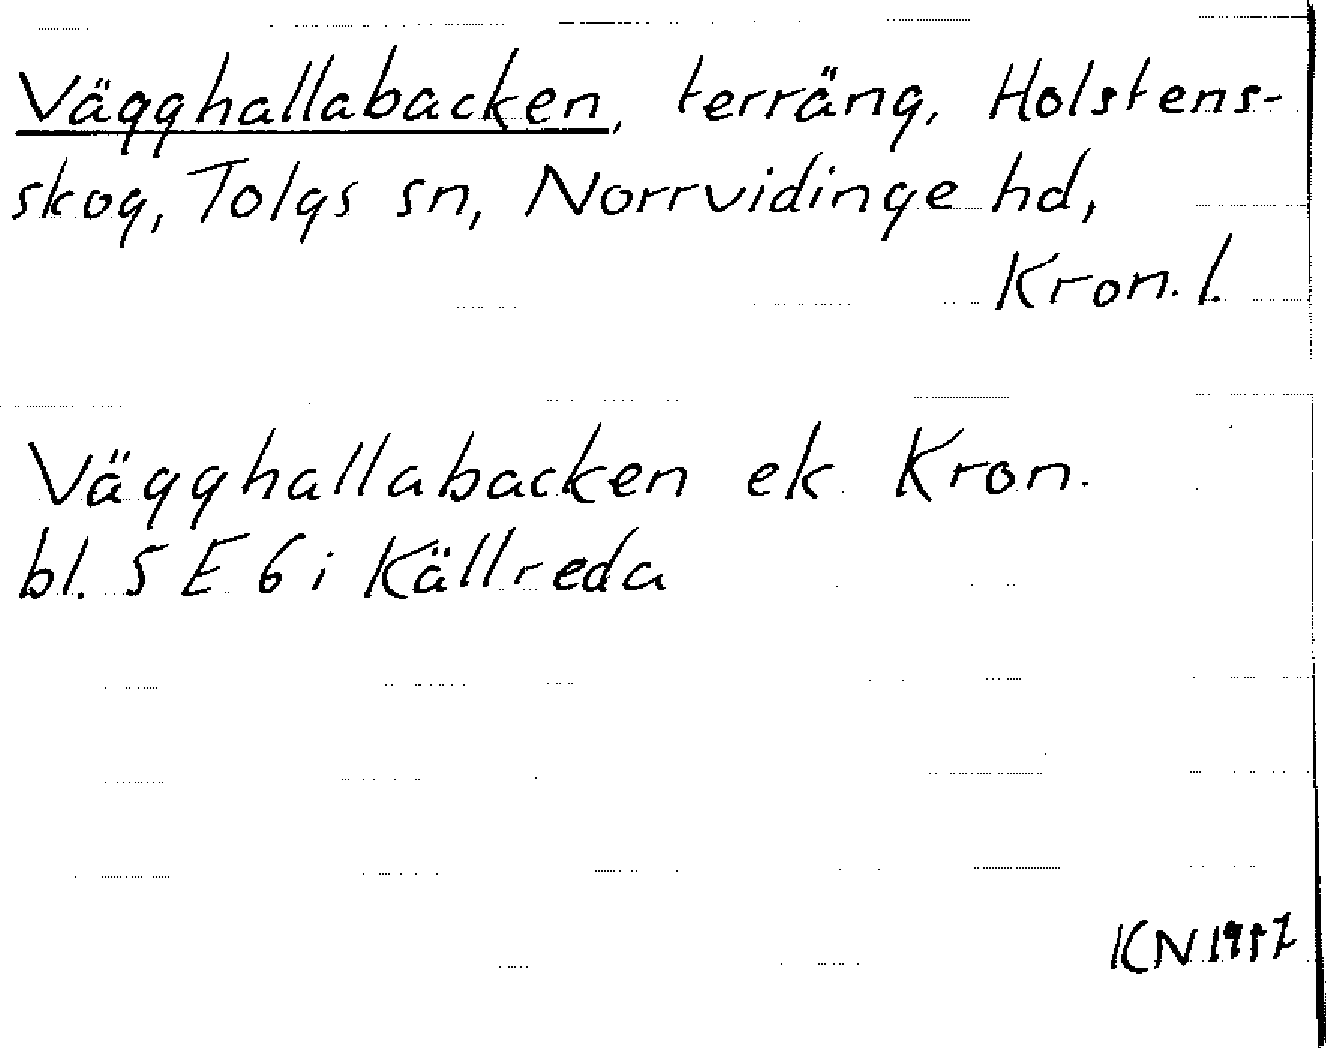 Vägghallabacken, terräng, Holstens-
skog, Tolgs sn, Norrvidinge hd,
Kron. l.
Vägghallabacken ek Kron.
bl. 5 E 6 i Källreda
KN